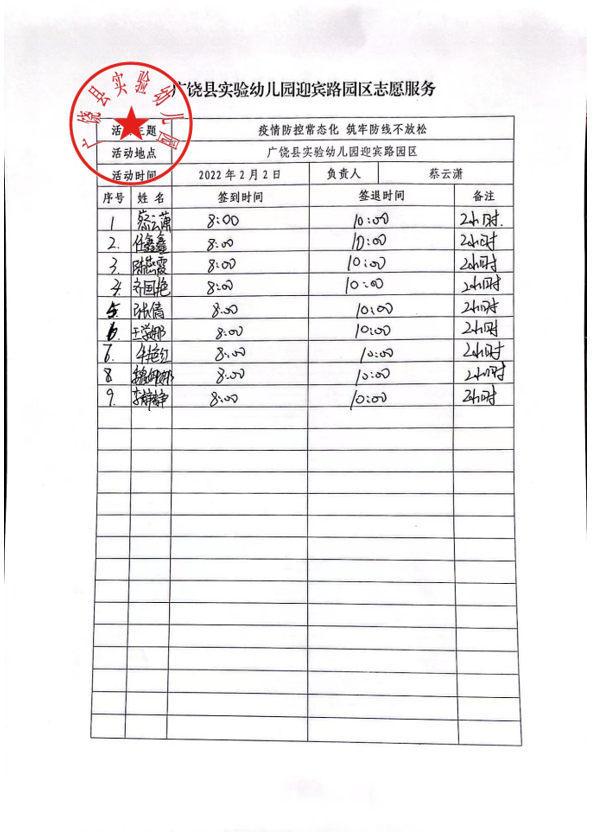 广饶县实验幼儿园
广饶县实验幼儿园迎宾路园区志愿服务
活动主题 疫情防控常态化 筑牢防线不放松
活动地点 广饶县实验幼儿园迎宾路园区
活动时间 2022年2月2日 负责人 蔡云潇
序号 姓名 签到时间 签退时间 备注
1 蔡云潇 8:00 10:00 2小时.
2. 任鑫鑫 8:00 10:00 2小时
3. 陈燕霞 8:00 10:00 2小时
4. 齐国艳 8:00 10:00 2小时
5. 张倩 8:00 10:00 2小时
6. 王学娜 8:00 10:00 2小时
7. 牛艳红 8:00 10:00 2小时
8. 8:00 10:00 2小时
9. 李婷婷 8:00 10:00 2小时